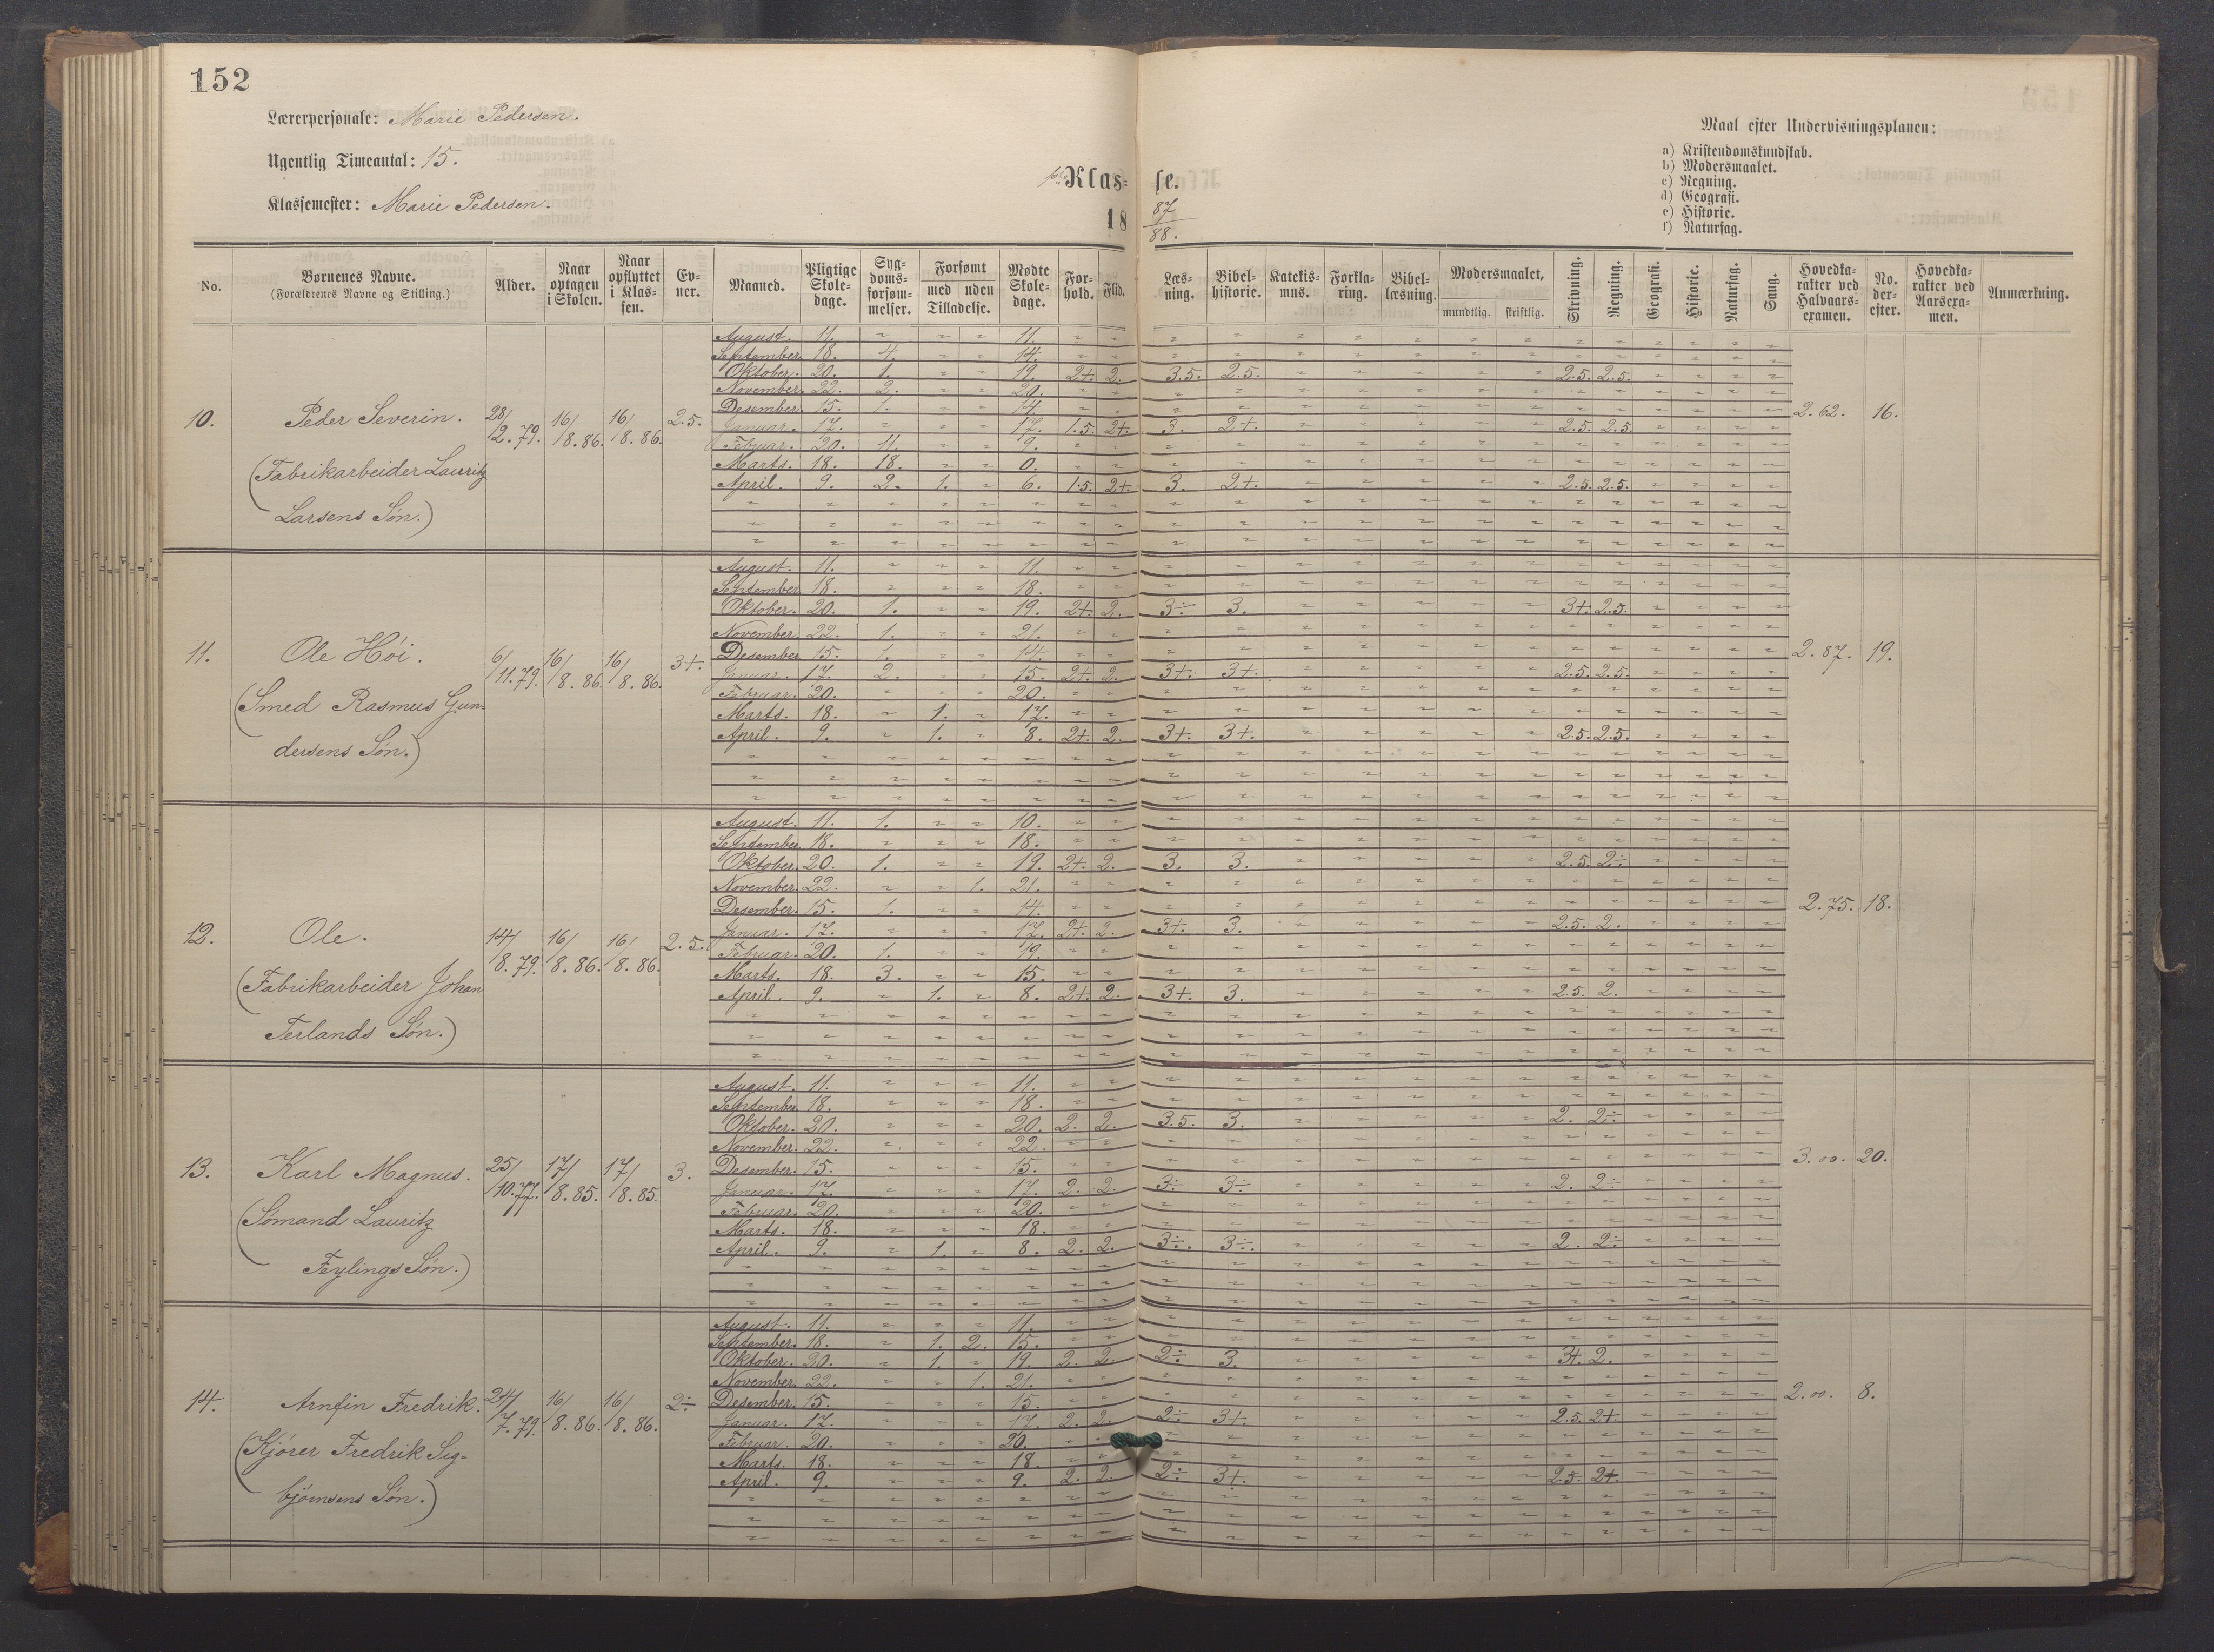 152
Lærerpersonale: Marie Pedersen.
Ugentlig Timeantal: 15.
Klassemester: Marie Pedersen.
Klas= se.
18 87/88.
Maal efter Undervisningsplanen:
a) Kristendomskundskab.
b) Modersmaalet.
c) Regning.
d) Geografi.
e) Historie.
f) Naturfag.
No. Børnenes Navne. (Forældrenes Navne og Stilling.) Alder. Naar optagen i Skolen. Naar opflyttet i Klas-sen. Ev-ner. Maaned. Pligtige Skole-dage. Syg-doms-forsøm-melser. Forsømt med uden Tilladelse. Mødte Skole-dage. For-hold. Flid. Læs-ning. Bibel-historie. Katekis-mus. Forkla-ring. Bibel-læsning. Modersmaalet, mundtlig. skriftlig. Skrivning. Regning. Geografi. Historie. Naturfag. Sang. Hovedka-rakter ved Halvaars-examen. No. der-efter. Hovedka-rakter ved Aarsexa-men. Anmærkning.
10. Peder Severin. (Fabrikarbeider Lauritz Larsens Søn.) 28/12.79. 16/8.86. 16/8.86. 2.5. 2.62. 16.
August. 11. " " " 11. " "
September. 18. 4. " " 14. " "
Oktober. 20. 1. " " 19. 2+. 2. 3.5. 2.5. " " " " " 2.5. 2.5. " " " "
November. 22. 2. " " 20. " "
Desember. 15. 1. " " 14. " "
Januar. 17. " " " 17. 1.5. 2+. 3. 2+. " " " " " 2.5. 2.5. " " " "
Februar. 20. 11. " " 9. " "
Marts. 18. 18. " " 0. " "
April. 9. 2. 1. " 6. 1.5. 2+. 3. 2+. " " " " " 2.5. 2.5. " " " "
11. Ole Höi. (Smed Rasmus Gun=dersens Søn.) 6/11.79. 16/8.86. 16/8.86. 3+. 2.87. 19.
August. 11. " " " 11. " "
September. 18. " " " 18. " "
Oktober. 20. 1. " " 19. 2+. 2. 3÷ 3. " " " " " 3+. 2.5. " " " "
November. 22. 1. " " 21. " "
Desember 15. 1. " " 14. " "
Januar. 17. 2. " " 15. 2+. 2. 3+. 3+. " " " " " 2.5. 2.5. " " " "
Februar. 20. " " " 20. " "
Marts. 18. " 1. " 17. " "
April. 9. " 1. " 8. 2+. 2. 3+. 3+. " " " " " 2.5. 2.5. " " " "
12. Ole. (Fabrikarbeider Johan Terlands Søn.) 14/8.79. 16/8.86. 16/8.86. 2.5. 2.75. 18.
August. 11. 1. " " 10. " "
September. 18. " " " 18. " "
Oktober. 20. 1. " " 19. 2+. 2. 3. 3. " " " " " 2.5. 2÷ " " " "
November. 22. " " 1. 21. " "
Desember. 15. 1. " " 14. " "
Januar. 17. " " " 17. 2+. 2. 3+. 3. " " " " " 2.5. 2. " " " "
Februar. 20. 1. " " 19. " "
Marts. 18. 3. " " 15. " "
April. 9. " 1. " 8. 2+. 2. 3+. 3. " " " " " 2.5. 2. " " " "
13. Karl Magnus. (Sømand Lauritz Feylings Søn.) 25/10.77. 17/8.85. 17/8.85. 3. 3.00. 20.
August. 11. " " " 11. " "
September. 18. " " " 18. " "
Oktober. 20. " " " 20. 2. 2. 3.5. 3. " " " " " 2. 2÷ " " " "
November. 22. " " " 22. " "
Desember. 15. " " " 15. " "
Januar. 17. " " " 17. 2. 2. 3÷ 3÷ " " " " " 2. 2÷ " " " "
Februar. 20. " " " 20. " "
Marts. 18. " " " 18. " "
April. 9. " 1. " 8. 2. 2. 3÷. 3÷. " " " " " 2. 2÷ " " " "
14. Arnfin Fredrik. (Kjörer Fredrik Sig=björnsens Søn.) 24/7.79. 16/8.86. 16/8.86. 2÷ 2.00. 8.
August. 11. " " " 11. " "
September. 18. " 1. 2. 15. " "
Oktober. 20. " 1. " 19. 2. 2. 2÷ 3. " " " " " 3+. 2. " " " "
November. 22. " " 1. 21. " "
Desember. 15. " " " 15. " "
Januar. 17. " " " 17. 2. 2. 2÷ 3+. " " " " " 2.5. 2+. " " " "
Februar. 20. " " " 20. " "
Marts. 18. " " " 18. " "
April. 9. " " " 9. 2. 2. 2÷ 3+. " " " " " 2.5. 2+. " " " "